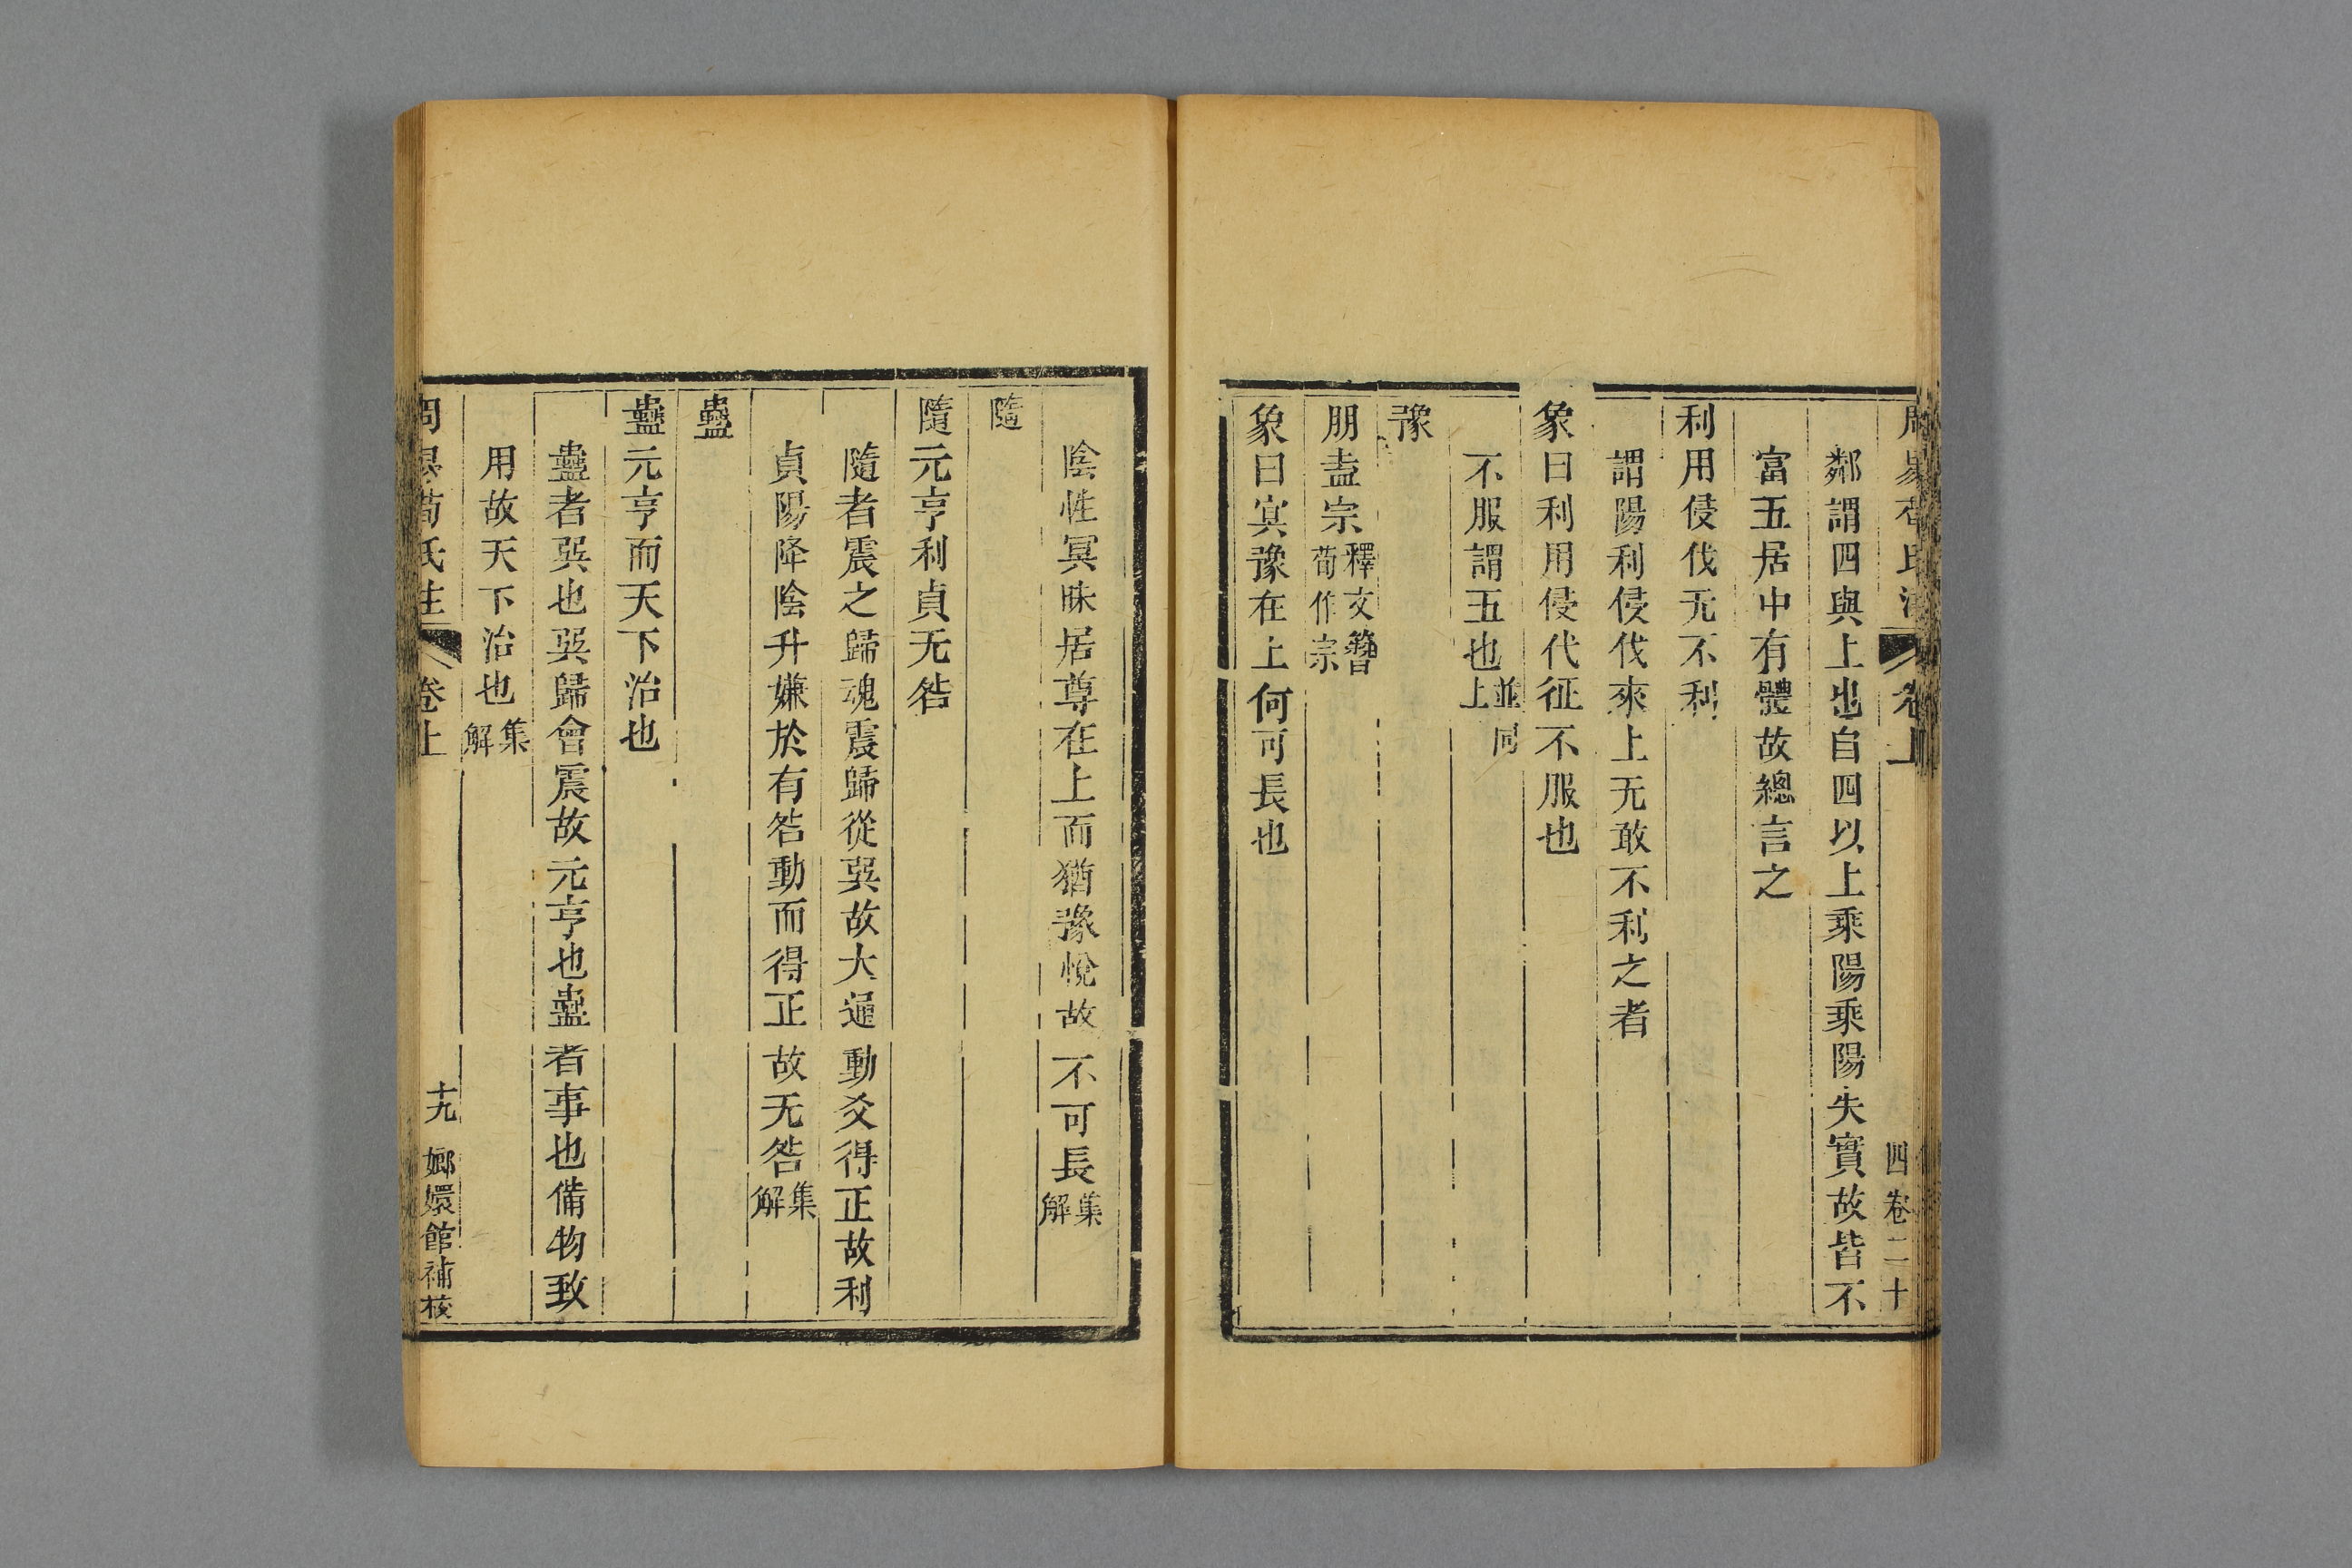 周易荀氏注 卷上 四卷二十
鄰謂四與上也自四以上乘陽乘陽失實故皆不
富五居中有體故總言之
利用侵伐无不利
謂陽利侵伐來上无敢不利之者
象曰利用侵伐征不服也
不服謂五也並同上
豫
朋盍宗釋文簪荀作宗
象曰冥豫在上何可長也
陰性冥昧居尊在上而猶豫悅故不可長集解
隨
隨元亨利貞无咎
隨者震之歸魂震歸從巽故大通動爻得正故利
貞陽降陰升嫌於有咎動而得正故无咎集解
蠱
蠱元亨而天下治也
蠱者巽也巽歸會震故元亨也蠱者事也備物致
用故天下治也集解
周易荀氏注 卷上 十九 嫏嬛館補校